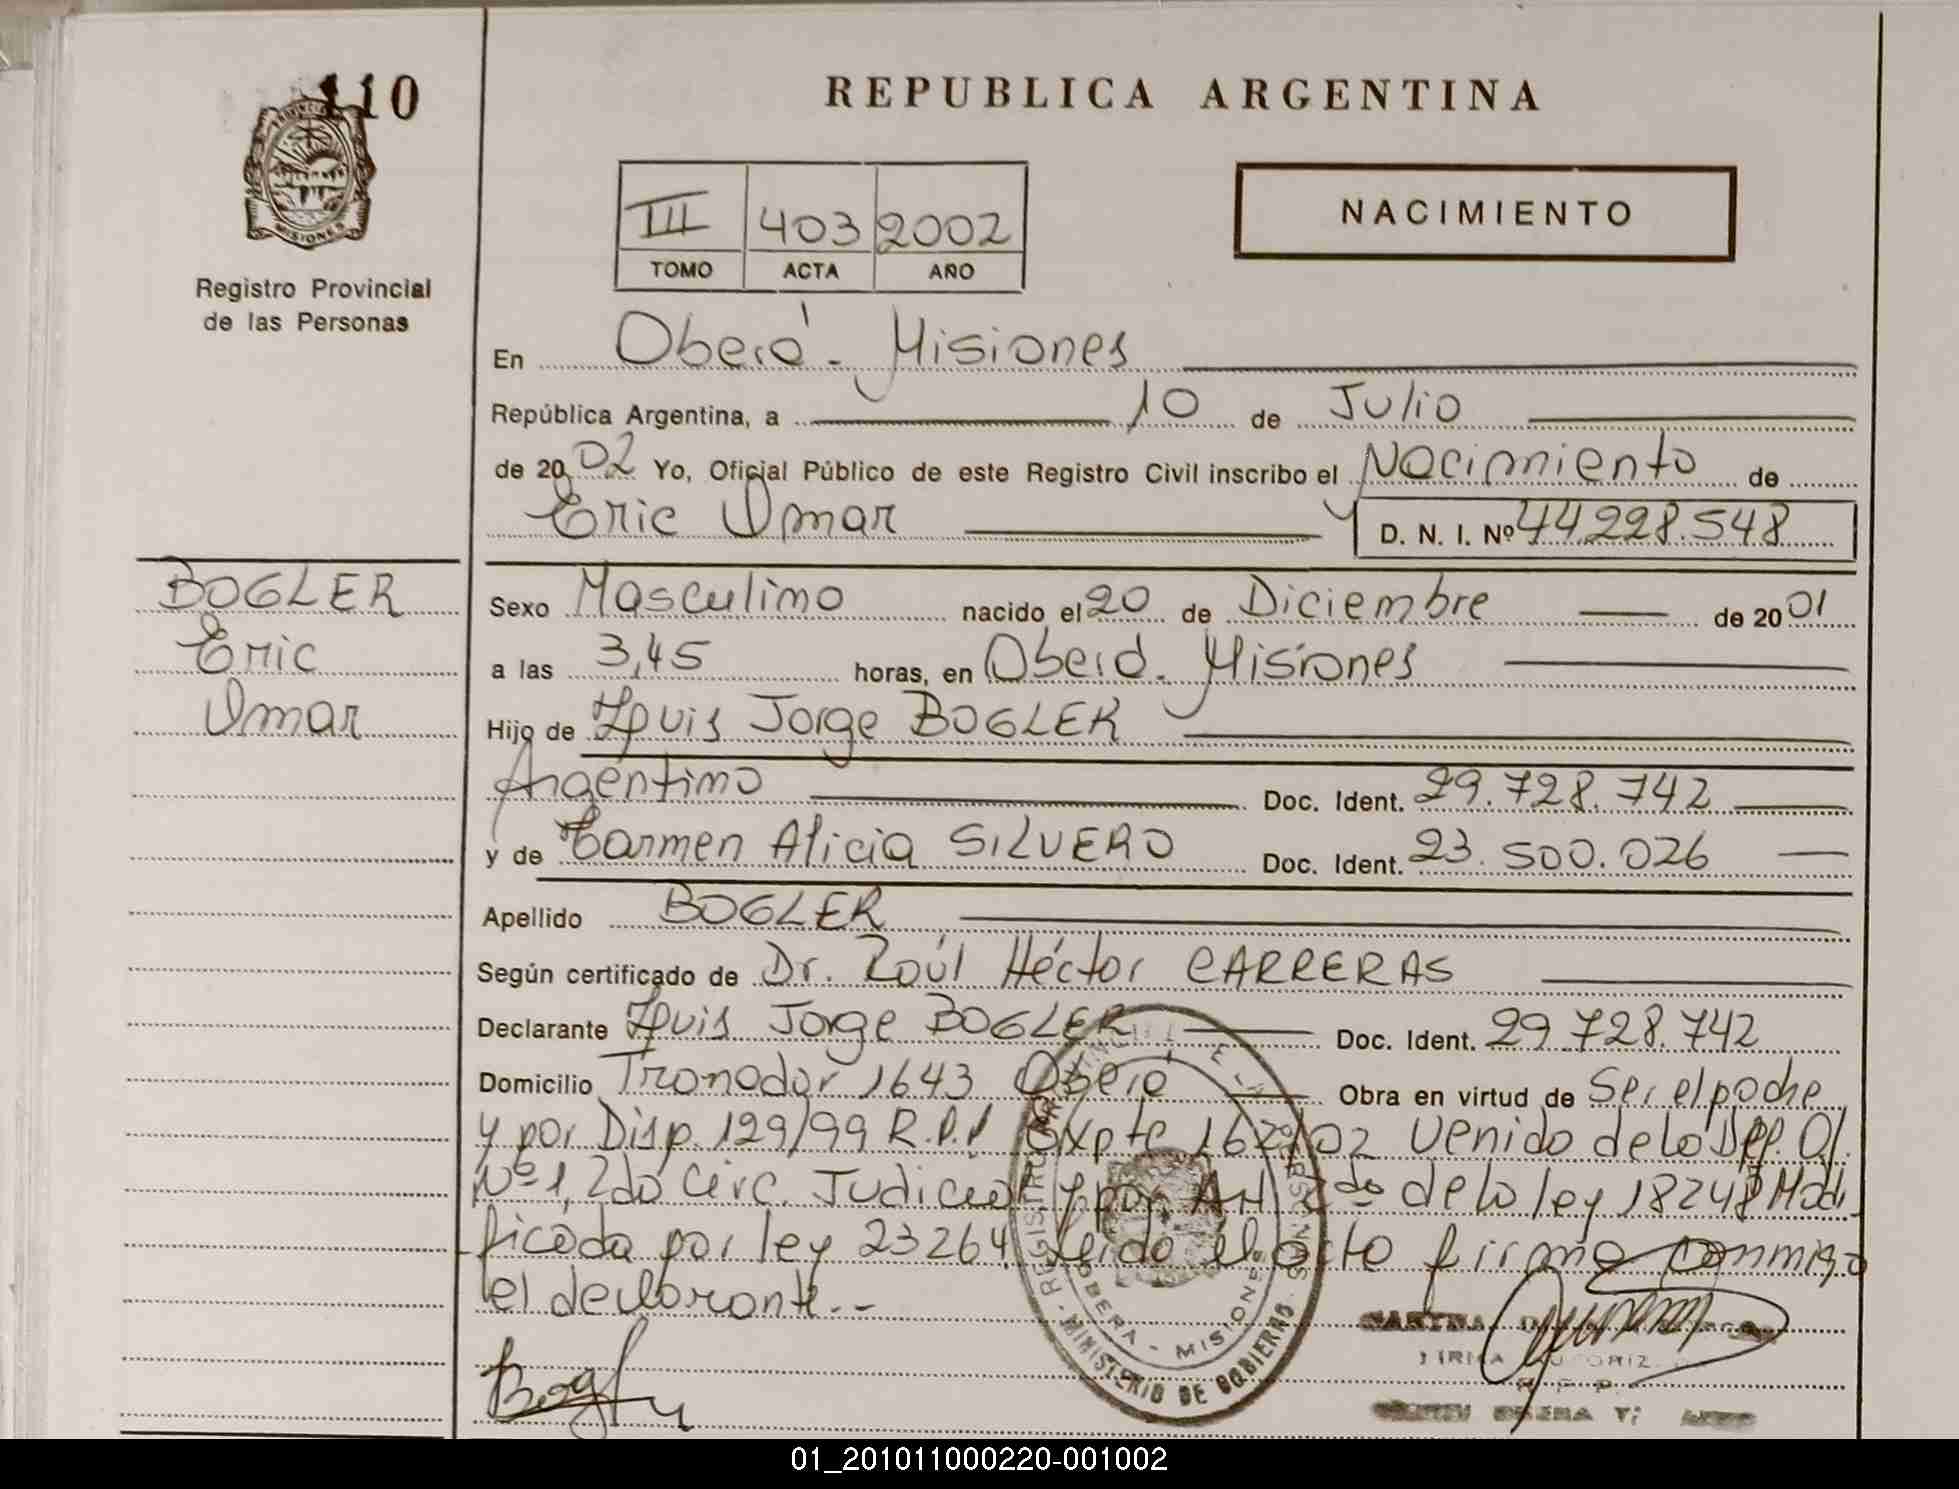 110
PROVINCIA
MISIONES
Registro Provincial
de las Personas
REPUBLICA ARGENTINA
III 403 2002
TOMO ACTA AÑO
NACIMIENTO
En Oberá - Misiones
República Argentina, a 10 de Julio
de 20 02 Yo, Oficial Público de este Registro Civil inscribo el Nacimiento de
Eric Omar D. N. I. Nº 44228.548
BOGLER
Eric
Omar
Sexo Masculino nacido el 20 de Diciembre de 20 01
a las 3,45 horas, en Oberá. Misiones
Hijo de Luis Jorge BOGLER
Argentino Doc. Ident. 29.728.742
y de Carmen Alicia SILVERO Doc. Ident. 23.500.026
Apellido BOGLER
Según certificado de Dr. Raúl Héctor CARRERAS
Declarante Luis Jorge BOGLER Doc. Ident. 29.728.742
Domicilio Tronador 1643 Oberá Obra en virtud de Ser el padre
y por Disp. 129/99 R.P.P Expte 162/02 Venido de la Of.
Nº 1, 2da Circ. Judicial y por Art 2do de la ley 18248 Modi
ficada por ley 23264. Leída el acta firma conmigo
el declarante.-
REGISTRO PROVINCIAL DE LAS PERSONAS
OBERA - MISIONES
MINISTERIO DE GOBIERNO
Bogler
FIRMA AUTORIZ
R. P. P.
OBERA
01_201011000220-001002